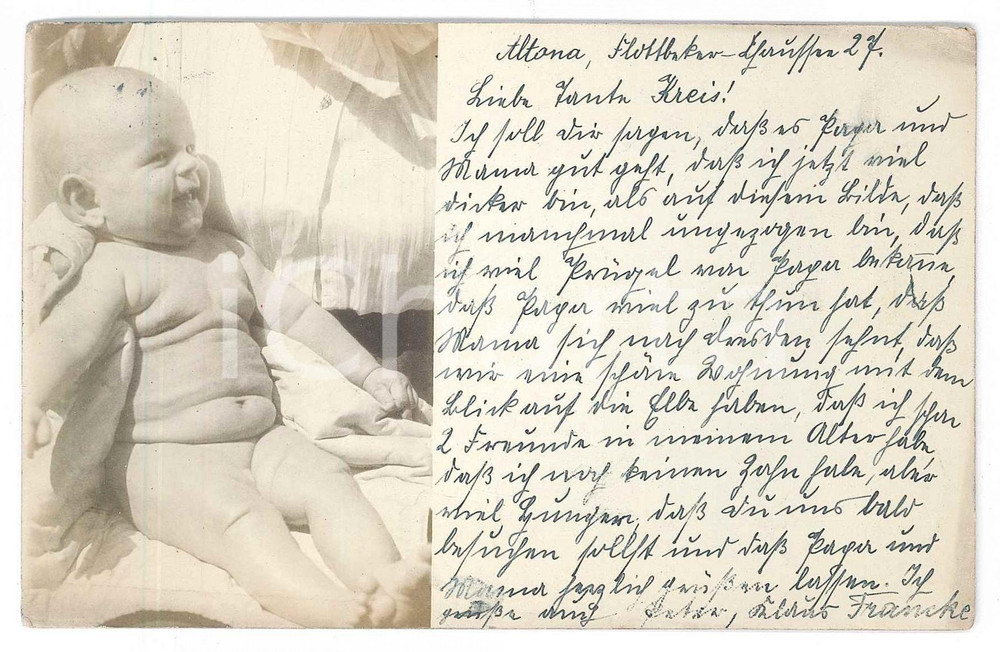 Altona, Flottbeker-Chaussee 27.
Liebe Tante Kreis!
Ich soll dir sagen, daß es Papa und
Mama gut geht, daß ich jetzt viel
dicker bin, als auf diesem Bilde, daß
ich manchmal ungezogen bin, daß
ich viel Prügel von Papa bekäme,
daß Papa viel zu thun hat, daß
Mama sich nach Dresden sehnt, daß
wir eine schöne Wohnung mit dem
Blick auf die Elbe haben, daß ich schon
2 Freunde in meinem Alter habe
daß ich noch keinen Zahn habe, aber
viel Hunger, daß du uns bald
besuchen sollst und daß Papa und
Mama herzlich grüßen lassen. Ich
grüße auch Peter, Klaus Francke